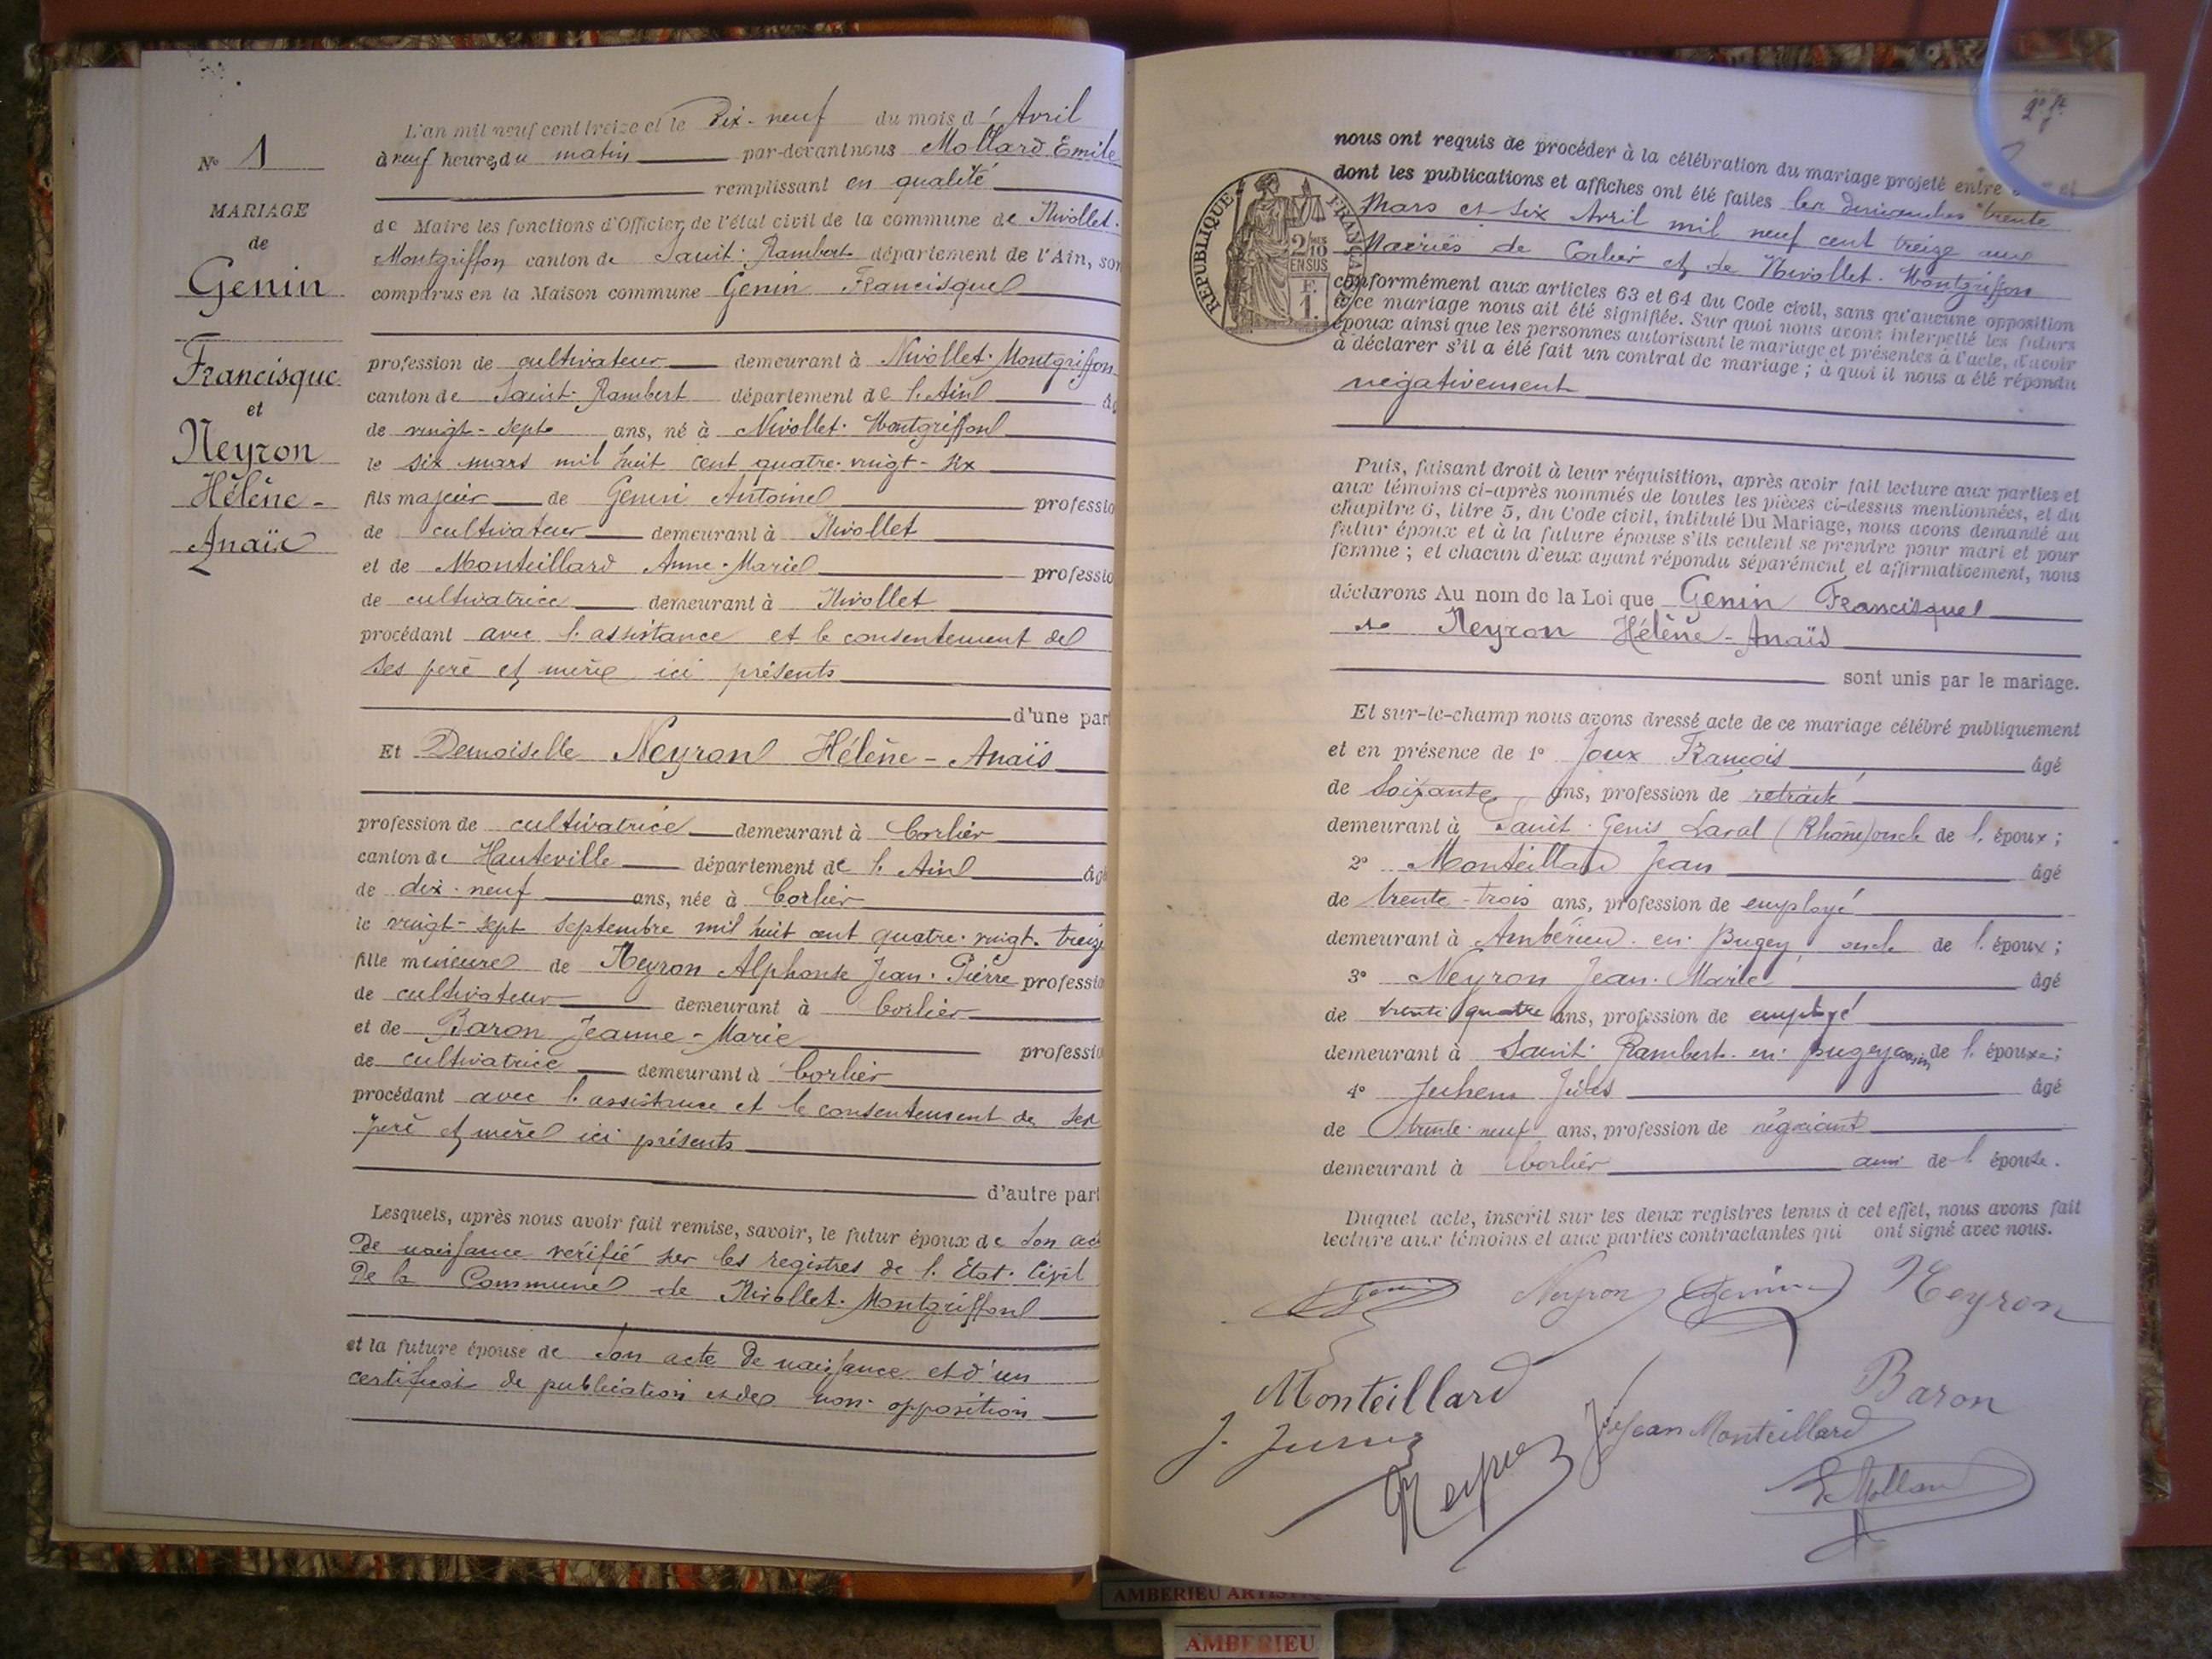 N° 1
MARIAGE
de
Genin
Francisque
et
Neyron
Hélène -
Anaïs
L'an mil neuf cent treize et le Dix-neuf du mois d'Avril
à neuf heures du matin par-devant nous Mollard Emile
remplissant en qualité
de Maire les fonctions d'Officier de l'état civil de la commune de Nivollet-
Montgriffon canton de Saint-Rambert département de l'Ain, son
comparus en la Maison commune Genin Francisque
profession de cultivateur demeurant à Nivollet-Montgriffon
canton de Saint-Rambert département de l'Ain âg
de vingt-sept ans, né à Nivollet-Montgriffon
le six mars mil huit cent quatre-vingt-six
fils majeur de Genin Antoine professio
de cultivateur demeurant à Nivollet
et de Monteillard Anne-Marie professio
de cultivatrice demeurant à Nivollet
procédant avec l'assistance et le consentement de
ses père et mère ici présents
d'une part
Et Demoiselle Neyron Hélène - Anaïs
profession de cultivatrice demeurant à Corlier
canton de Hauteville département de l'Ain âgé
de dix-neuf ans, née à Corlier
le vingt-sept septembre mil huit cent quatre-vingt-treize
fille mineure de Neyron Alphonse Jean-Pierre professio
de cultivateur demeurant à Corlier
et de Baron Jeanne-Marie professio
de cultivatrice demeurant à Corlier
procédant avec l'assistance et le consentement de ses
père et mère ici présents
d'autre part
Lesquels, après nous avoir fait remise, savoir, le futur époux de son ac
de naissance vérifié sur les registres de l'Etat-Civil
de la Commune de Nivollet-Montgriffon
et la future épouse de son acte de naissance et d'un
certificat de publication et de non-opposition
nous ont requis de procéder à la célébration du mariage projeté entre et
dont les publications et affiches ont été faites les dimanches trente
Mars et six Avril mil neuf cent treize aux
Mairies de Corlier et de Nivollet-Montgriffon
conformément aux articles 63 et 64 du Code civil, sans qu'aucune opposition
à ce mariage nous ait été signifiée. Sur quoi nous avons interpellé les futurs
époux ainsi que les personnes autorisant le mariage et présentes à l'acte, d'avoir
à déclarer s'il a été fait un contrat de mariage ; à quoi il nous a été répondu
négativement
RÉPUBLIQUE FRANÇAISE
2/10
EN SUS
F.
1.
Puis, faisant droit à leur réquisition, après avoir fait lecture aux parties et
aux témoins ci-après nommés de toutes les pièces ci-dessus mentionnées, et du
chapitre 6, titre 5, du Code civil, intitulé Du Mariage, nous avons demandé au
futur époux et à la future épouse s'ils veulent se prendre pour mari et pour
femme ; et chacun d'eux ayant répondu séparément et affirmativement, nous
déclarons Au nom de la Loi que Genin Francisque
Neyron Hélène - Anaïs
sont unis par le mariage.
Et sur-le-champ nous avons dressé acte de ce mariage célébré publiquement
et en présence de 1° Joux François âgé
de soixante ans, profession de retraité
demeurant à Saint-Genis Laval (Rhône) oncle de l'époux ;
2° Monteillard Jean âgé
de trente-trois ans, profession de employé
demeurant à Ambérieu-en-Bugey, oncle de l'époux ;
3° Neyron Jean-Marie âgé
de trente quatre ans, profession de employé
demeurant à Saint-Rambert-en-Bugey cousin de l'épouse ;
4° Juhem Jules âgé
de trente-neuf ans, profession de négociant
demeurant à Corlier ami de l'épouse.
Duquel acte, inscrit sur les deux registres tenus à cet effet, nous avons fait
lecture aux témoins et aux parties contractantes qui ont signé avec nous.
Genin Neyron Genin Neyron
Monteillard Baron
J. Jean Monteillard
Neyron
E. Mollard
AMBERIEU
AMBERIEU